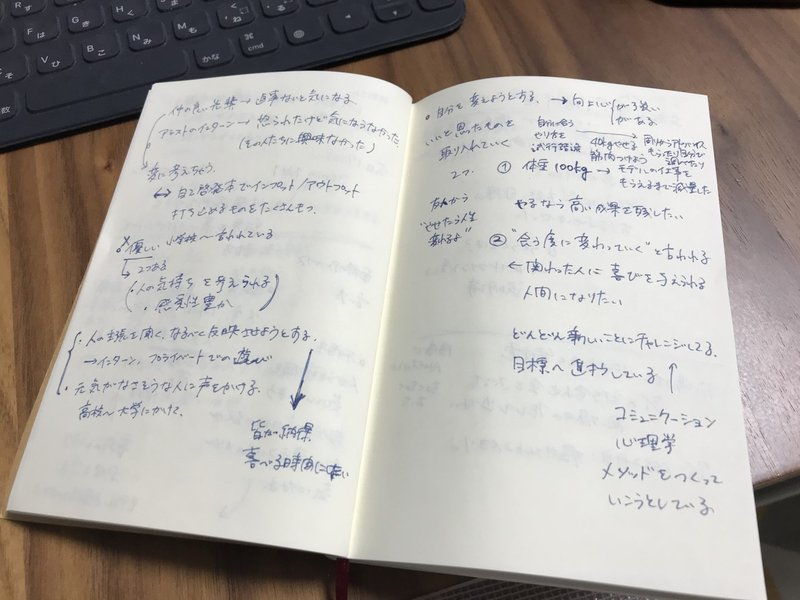 仲の良い先輩→返事ないと気になる
アシストのインターン→怒られたけど気にならなかった
(その人たちに興味なかった)
変に考えちゃう
↔ 自己啓発本でインプット/アウトプット
打ち込めるものをたくさんもつ
優しい 小学校〜言われている
2つある
・人の気持ちを考えられる
・感受性豊か
・人の主張を聞く、なるべく反映させようとする
→インターン、プライベートでの遊び
・元気がなさそうな人に声をかける
高校〜大学にかけて
皆が納得
喜べる時間にしたい
自分を変えようとする →向上心が強い
がある
いいと思ったものを
取り入れていく
自分に合う
やり方を
試行錯誤
40kgやせる
筋肉つけよう
周りからアドバイス
もらったり自分で
2つ
① 体重100kg→モデルの仕事を
もらえるまで減量した
友人から
"やせたら人生
変わるよ"
やるなら高い成果を残したい
② "会う度に変わっていく"と言われる
←関わった人に喜びを与えられる
人間になりたい
どんどん新しいことにチャレンジしてる
目標へ直向している
コミュニケーション
心理学
メソッドをつくって
いこうとしている
英数
F は
G き
H く
V ひ
B こ
N み
M も
かな
⌘
cmd